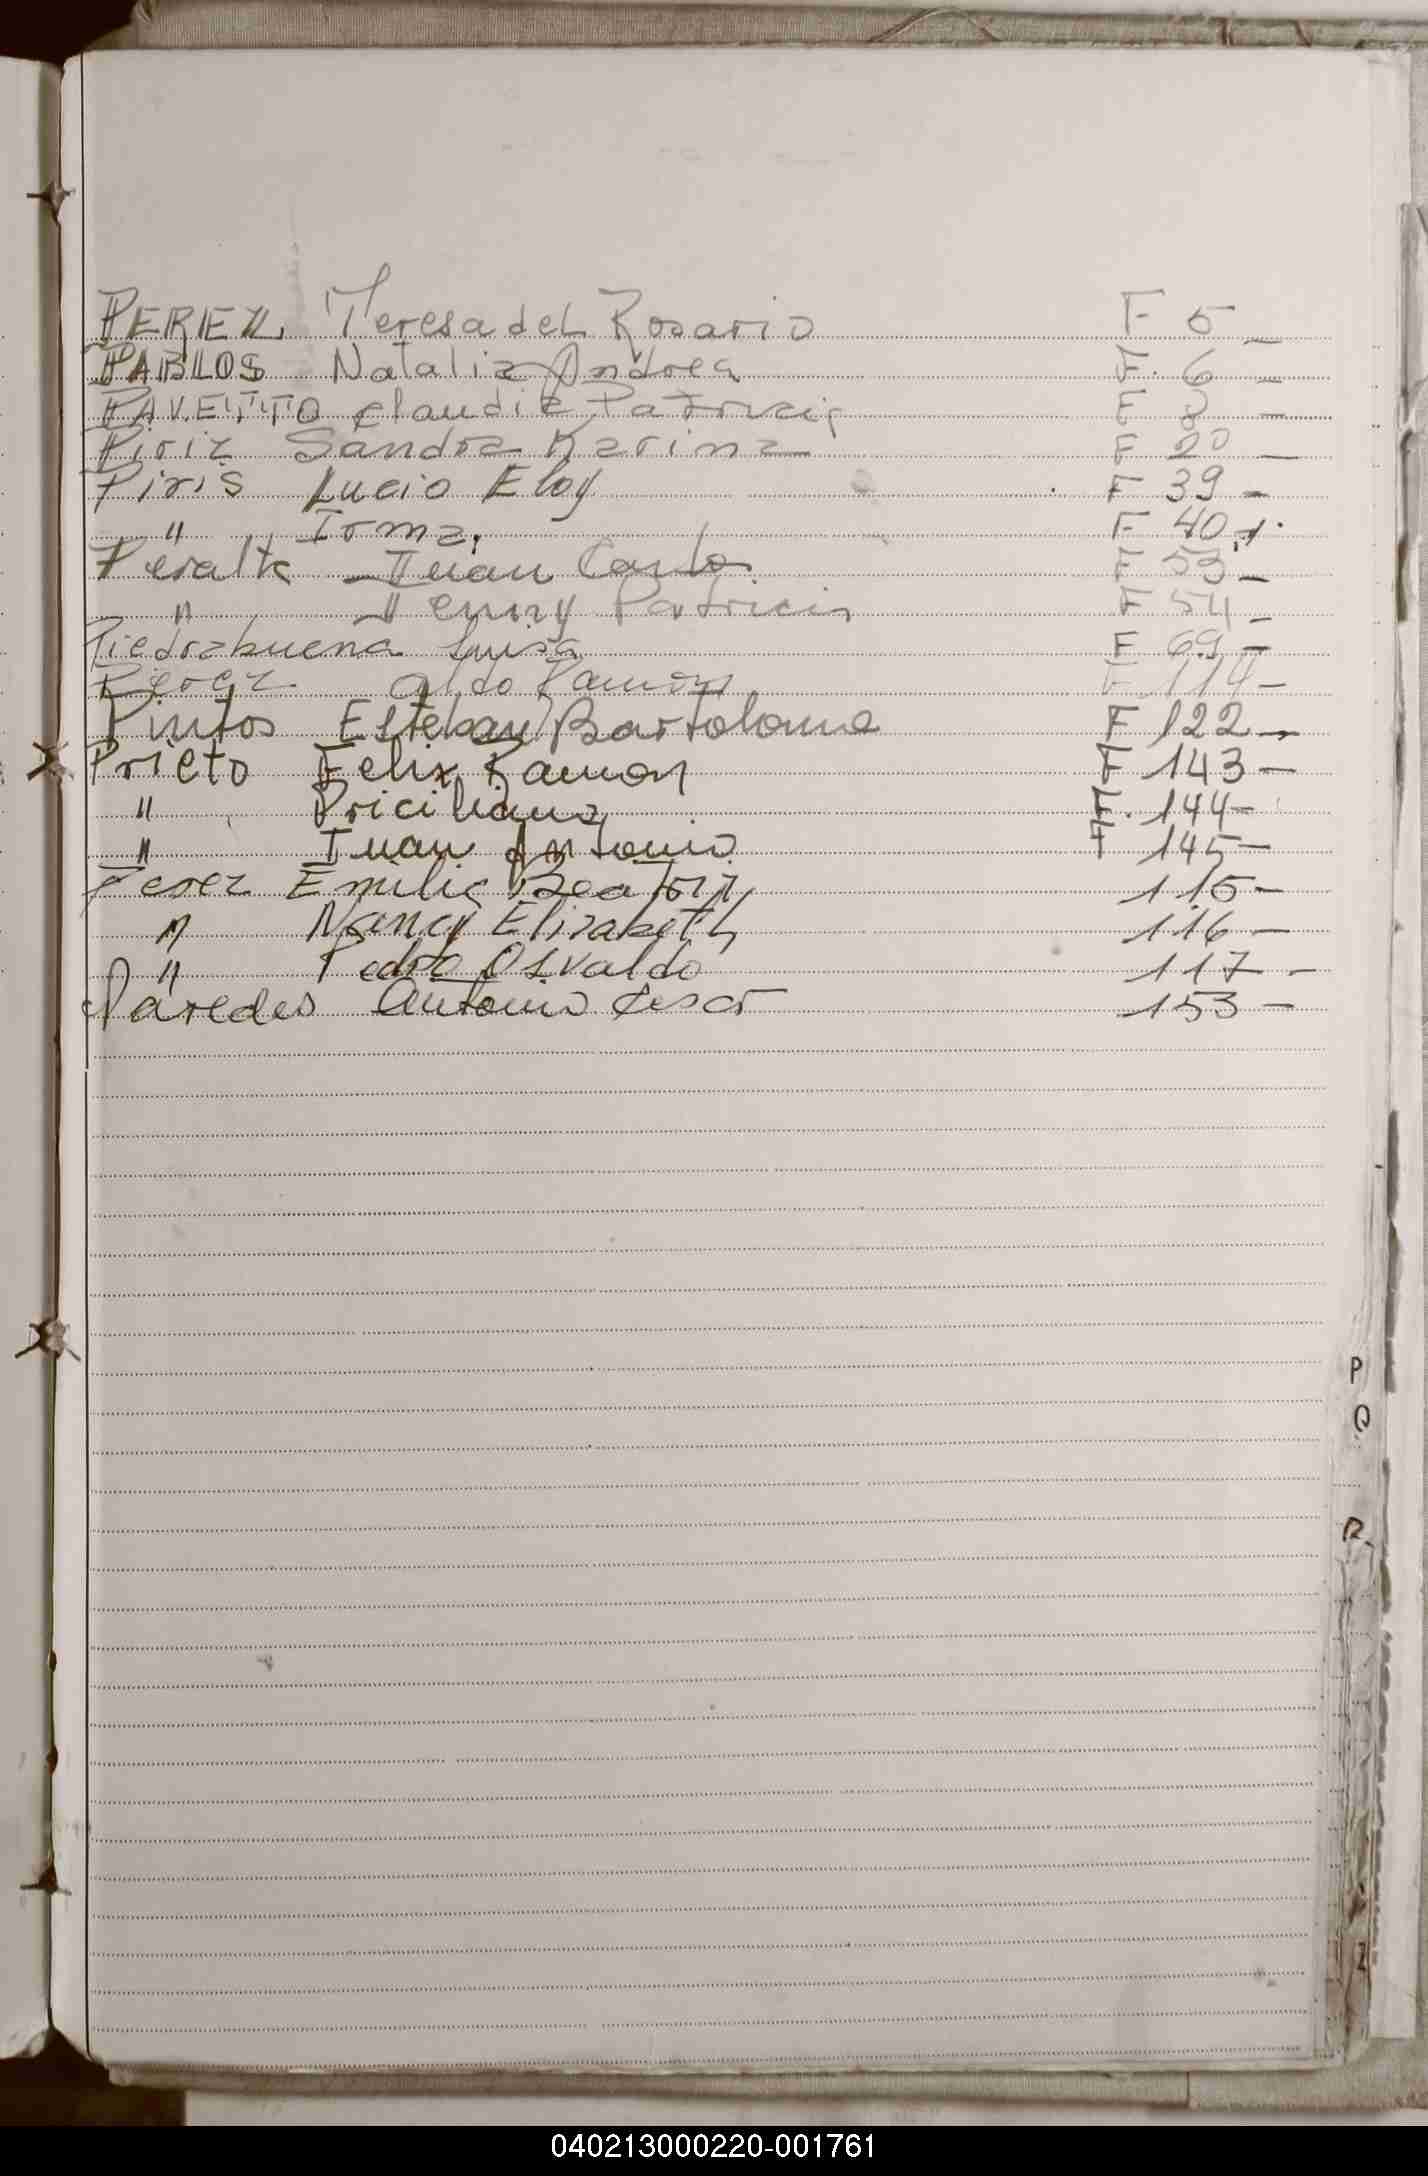 PEREZ Teresa del Rosario F 5 -
PABLOS Natalia Andrea F. 6 -
PAVETTO Claudia Patricia F 8 -
Piriz Sandra Karina F 20 -
Piris Lucio Eloy F 39 -
" Irma. F 40 -
Peralta Juan Carlo F 53 -
" Jenny Patricia F 54 -
Piedrabuena Luisa F 69 -
Perez Aldo Ramon F 114 -
Pintos Esteban Bartolome F 122 -
Prieto Felix Ramon F 143 -
" Priciliana F. 144 -
" Juan Antonio F 145 -
Perez Emilia Beatriz 115 -
" Nancy Elizabeth 116 -
" Pedro Osvaldo 117 -
Paredes Antonio Cesar 153 -
P
Q
R
Z
040213000220-001761